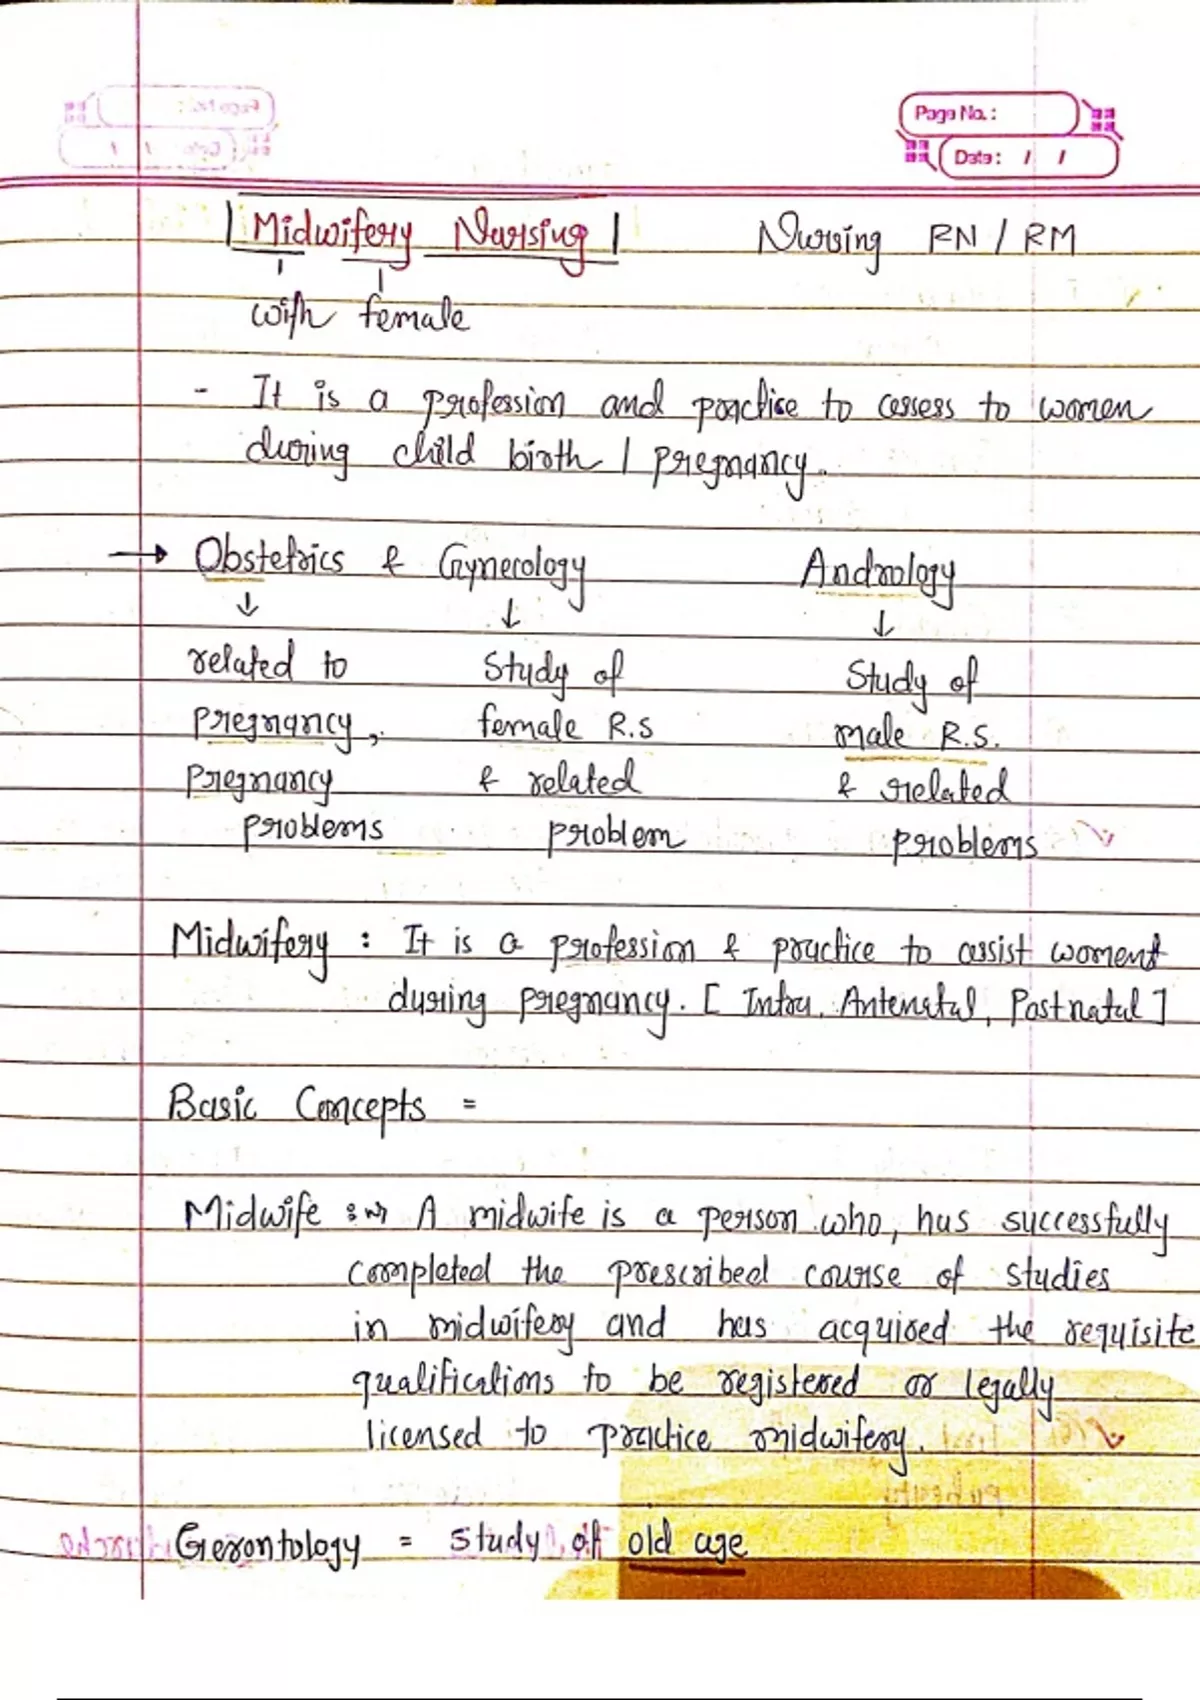 Page No. :
Date : / /
| Midwifery Nursing | Nursing RN / RM
with female
- It is a profession and practice to assess to women
during child birth / pregnancy.
→ Obstetrics & Gynecology Andrology
↓ ↓ ↓
related to Study of Study of
pregnancy, female R.S male R.S.
pregnancy & related & related
problems problem problems
Midwifery : It is a profession & practice to assist woment
during pregnancy. [ Intra, Antenatal, Postnatal ]
Basic Concepts =
Midwife :⇒ A midwife is a person who, has successfully
completed the prescribed course of studies
in midwifery and has acquired the requisite
qualifications to be registered or legally
licensed to practice midwifery.
Gerontology = Study of old age